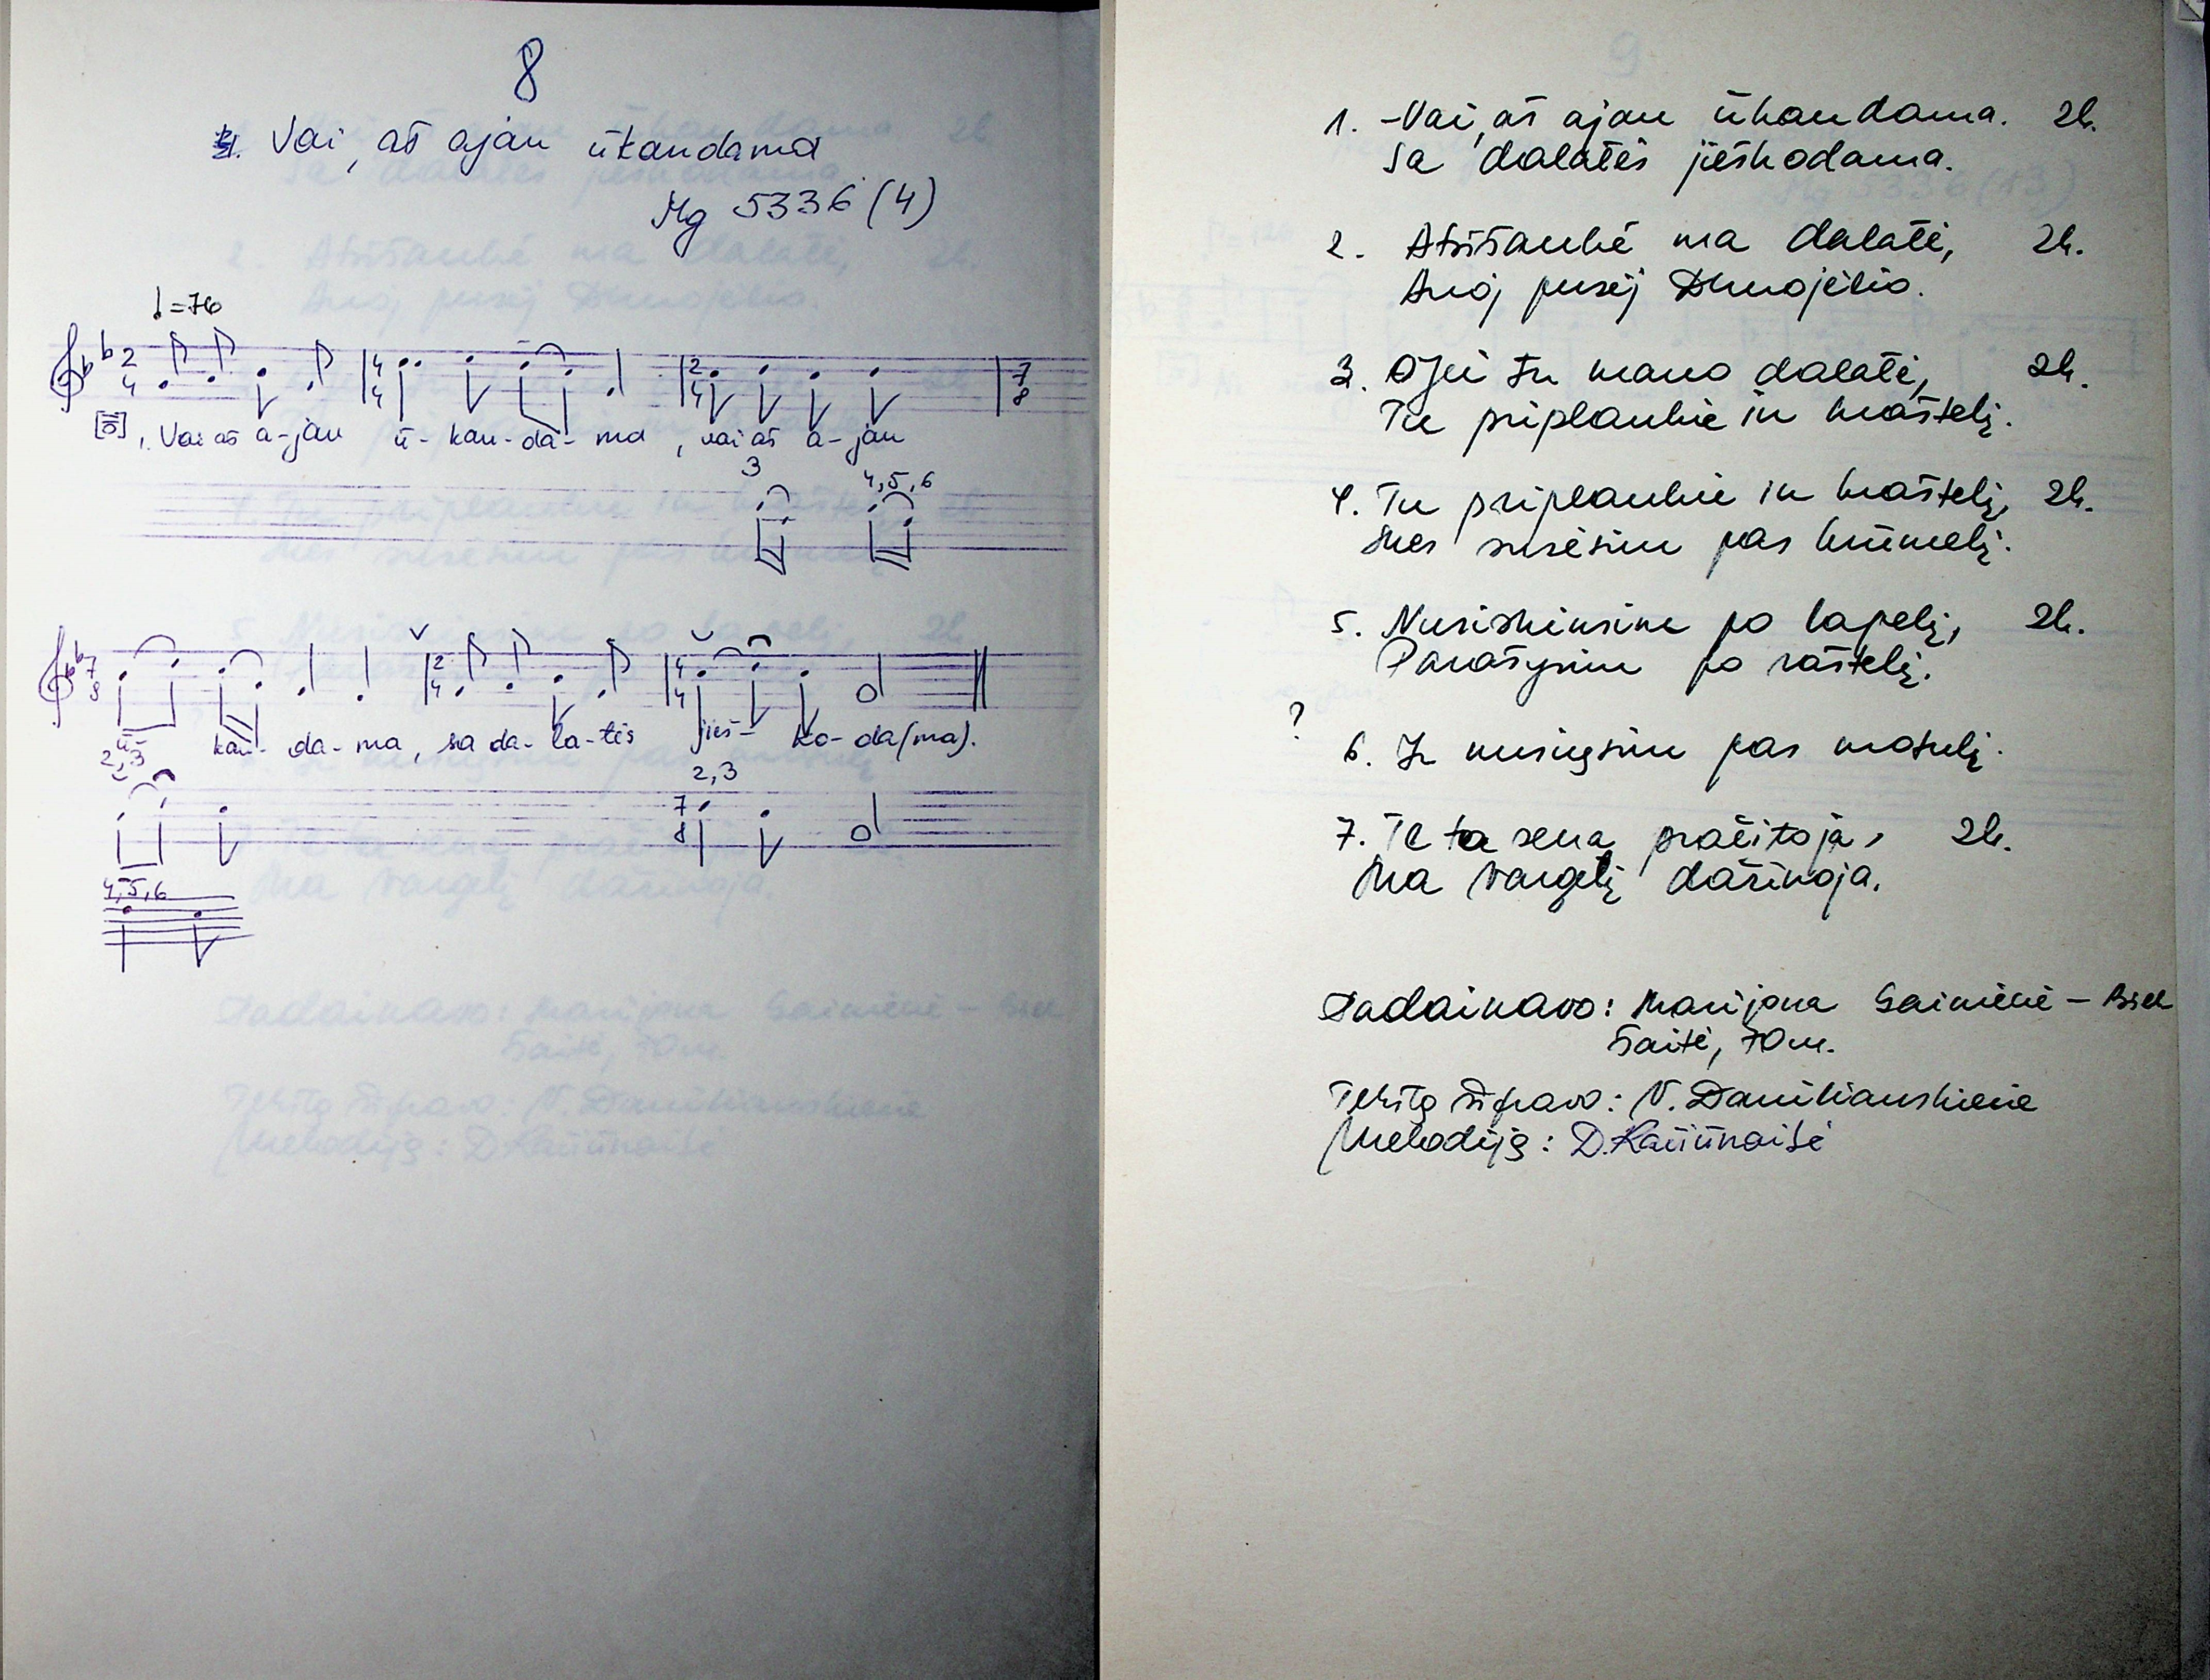 8
Vai, aš ajau ūkaudama
Mg 5336 (4)
=76
2 4
4 4
2 4
7 8
1. Vai aš a-jau ū-kau-da-ma, vai aš a-jau
3
4,5,6
7 8
2 4
4 4
ū- kau- da-ma, sa da-la-tės jieš- ko-da(ma).
2,3
2,3
7 8
4,5,6
1. -Vai, aš ajau ūkaudama. 2k.
Sa dalatės jieškodama.
2. Atsišaukė ma dalatė, 2k.
Anoj pusėj Dunojėlio.
3. Ojei tu mano dalatė, 2k.
Tu priplaukie in kraštelį.
4. Tu priplaukie in kraštelį, 2k.
Mes susėsim pas krūmelį.
5. Nusiskinsime po lapelį, 2k.
Parašysim po raštelį.
?
6. Ir nusiųsim pas motulį.
7. Te ta sena pračitoja, 2k.
Ma vargelį dažinoja.
Padainavo: Marijona Gainienė-
šaitė, 70 m.
Tekstą šifravo: V. Daniliauskienė
Melodiją: D. Kačiūnaitė